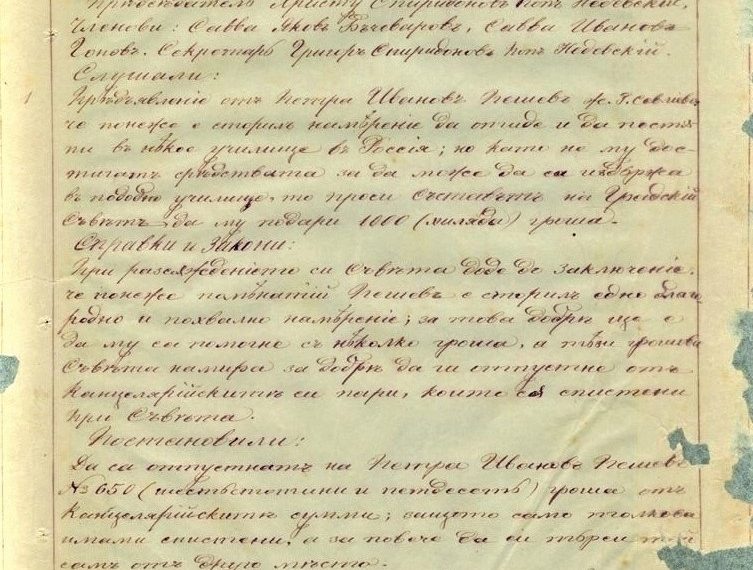 Прѣдсѣдатель Христу Спиридоновъ Попъ Недевскій,
Членови: Савва Яковъ Бъчеваровъ, Савва Ивановъ
Гоновъ. Секретарь Григоръ Спиридоновъ Попъ Недевскій.
Слушали:
1 Прѣдъявленіе отъ Петра Ивановъ Пешевъ ж. г. Севліевъ
че понеже е сторилъ намѣреніе да отиде и да постѫ-
пи въ нѣкое училище въ Россія; но като не му дос-
тигатъ срѣдствата за да може да са издържа
въ подобно училище, то проси Съставътъ на Градскій
Съвѣтъ, да му подари 1000 (хиляда) гроша.
Справки и Закони:
При разсѫжденіето си Съвѣта доде до заключеніе,
че понеже помѣнатій Пешевъ е сторилъ едно благо
родно и похвално намѣреніе; за това добрѣ ще е
да му са помогне съ нѣколко гроша, а тѣзи грошева
Съвѣта намира за добрѣ да ги отпустне отъ
Канцелярійскитѣ си пари, които сѫ спистени
при Съвѣта.
Постановили:
Да са отпустнатъ на Петра Ивановъ Пешевъ
№ 650 (шестьстотини и петдесеть) гроша отъ
Канцелярійскитѣ сумми; защото само толкова
имами спистени, а за повече да си търси той
самъ отъ друго мѣсто.